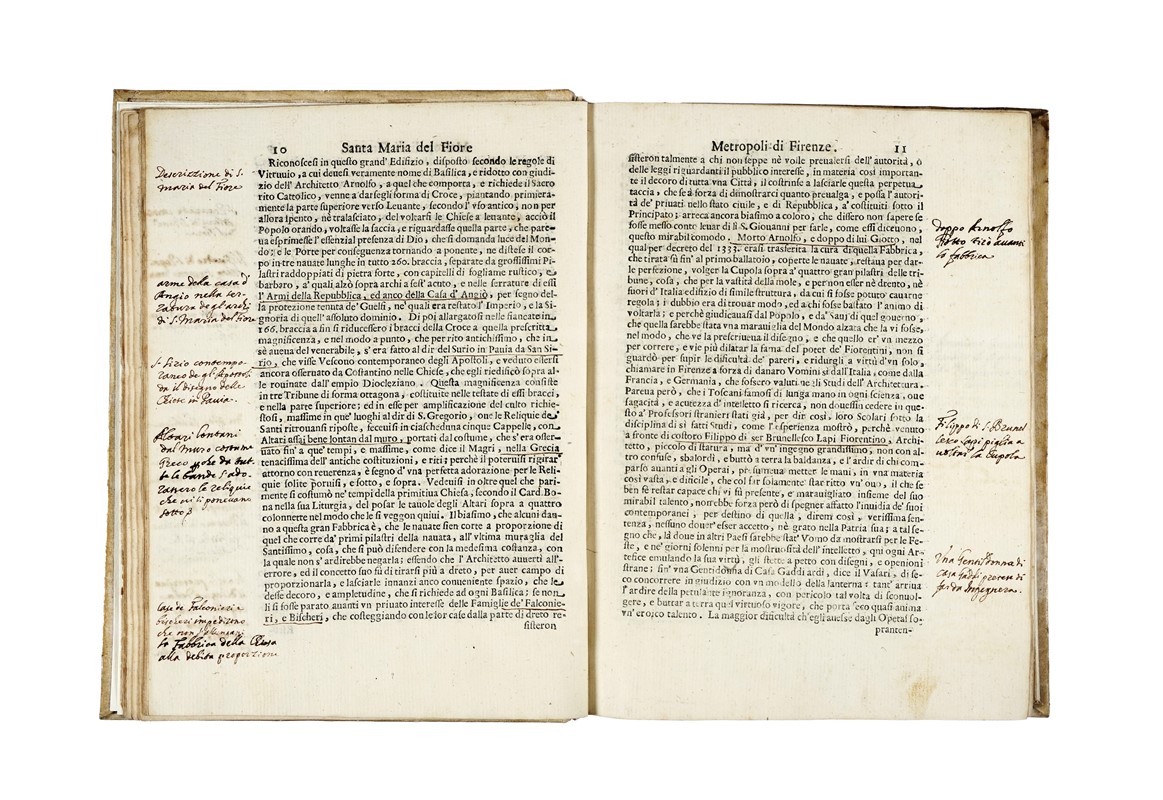 10 Santa Maria del Fiore
Riconoscesi in questo grand' Edifizio, disposto secondo le regole di
Vitruuio, a cui deuesi veramente nome di Basilica, e ridotto con giudi-
zio dell' Architetto Arnolfo, a quel che comporta, e richiede il Sacro
rito Cattolico, venne a darsegli forma di Croce, piantando primiera-
mente la parte superiore verso Leuante, secondo l' vso antico, non per
allora spento, nè tralasciato, del voltarsi le Chiese a leuante, acciò il
Popolo orando, voltasse la faccia, e riguardasse quella parte, che pare-
ua esprimesse l'essenzial presenza di Dio, che si domanda luce del Mon-
do; e le Porte per conseguenza tornando a ponente, ne distese il cor-
po in tre nauate lunghe in tutto 260. braccia, separate da grossissimi Pi-
lastri raddoppiati di pietra forte, con capitelli di fogliame rustico, e
barbaro, a' quali alzò sopra archi a sest' acuto, e nelle serrature di essi
l' Armi della Repubblica, ed anco della Casa d' Angiò, per segno del-
la protezione tenuta de' Guelfi, ne' quali era restato l' Imperio, e la Si-
gnoria di quell' assoluto dominio. Di poi allargatosi nelle fiancate in
166. braccia a fin si riducessero i bracci della Croce a quella prescritta
magnificenza, e nel modo a punto, che per rito antichissimo, che in
sè aueua del venerabile, s' era fatto al dir del Surio in Pauia da San Si-
rio, che visse Vescouo contemporaneo degli Apostoli, e veduto essersi
ancora osseruato da Costantino nelle Chiese, che egli riedificò sopra al-
le rouinate dall' empio Diocleziano. Questa magnificenza consiste
in tre Tribune di forma ottagona, costituite nelle testate di essi bracci,
e nella parte superiore; ed in esse per amplificazione del culto richie-
stosi, massime in que' luoghi al dir di S. Gregorio, oue le Reliquie de'
Santi ritrouansi riposte, feceui in ciascheduna cinque Cappelle, con
Altari assai bene lontan dal muro, portati dal costume, che s' era osser-
uato fin a que' tempi, e massime, come dice il Magri, nella Grecia
tenacissima dell' antiche costituzioni, e riti; perchè il potersisi rigirar
attorno con reuerenza, è segno d' vna perfetta adorazione per le Reli-
quie solite poruisi, e sotto, e sopra. Vedeuisi in oltre quel che pari-
mente si costumò ne' tempi della primitiua Chiesa, secondo il Card. Bo-
na nella sua Liturgia, del posar le tauole degli Altari sopra a quattro
colonnette nel modo che le si veggon quiui. Il biasimo, che alcuni dan-
no a questa gran Fabbrica è, che le nauate sien corte a proporzione di
quel che corre da' primi pilastri della nauata, all' vltima muraglia del
Santissimo, cosa, che si può difendere con la medesima costanza, con
la quale non s' ardirebbe negarla: essendo che l' Architetto auuertì all'
errore, ed il concetto suo fù di tirarsi più a dreto, per auer campo di
proporzionarla, e lasciarle innanzi anco conueniente spazio, che le
desse decoro, e ampletudine, che si richiede ad ogni Basilica; se non
li si fosse parato auanti vn priuato interesse delle Famiglie de' Falconie-
ri, e Bischeri, che costeggiando con le lor case dalla parte di dreto re-
sisteron
Descrizzione di S.
Maria del Fiore
arme della casa d'
Angio nella ser-
ratura degl archi
di S. Maria del Fiore
S. Sirio contempo-
raneo de gl' Apostoli
da il disegno delle
Chiese in Pavia.
Altari lontani
dal muro costume
Greco
le bande s'ado-
rassero le reliquie
che vi si ponevano
sotto
Case de Falconieri e
Bischeri impedirno
che non s'allungasse
la Fabbrica della Chiesa
alla debita proportione
Metropoli di Firenze. 11
sisteron talmente a chi non seppe nè volle preualersi dell' autorità, o
delle leggi riguardanti il pubblico interesse, in materia così importan-
te il decoro di tutta vna Città, il costrinse a lasciarle questa perpetua
taccia, che se à forza di dimostrarci quanto preuaglia, e possa l' autori-
tà de' priuati nello stato ciuile, e di Repubblica, a' costituiti sotto il
Principato; arreca ancora biasimo a coloro, che dissero non sapere se
fosse messo conto leuar di lì S. Giouanni per farle, come essi diceuono,
questo mirabil comodo. Morto Arnolfo, e doppo di lui Giotto, nel
qual per decreto del 1333. erasi trasferita la cura di quella Fabbrica,
che tirata fù fin' al primo ballatoio, coperte le nauate, restaua per dar-
le perfezione, volger la Cupola sopra a' quattro gran pilastri delle tri-
bune, cosa, che per la vastità della mole, e per non esser nè drento, nè
fuori d' Italia edifizio di simile struttura, da cui si fosse potuto cauarne
regola; i dubbio era di trouar modo, ed a chi fosse bastato l' animo di
voltarla; e perchè giudicauasi dal Popolo, e da' Saui di quel gouerno,
che quella sarebbe stata vna marauiglia del Mondo alzata che la vi fosse,
nel modo, che ve la prescriueua il disegno, e che quello er' vn mezzo
per correre, e vie più dilatar la fama del poter de' Fiorentini, non si
guardò per supir le dificultà de' pareri, e ridurgli a virtù d'vn solo,
chiamare in Firenze a forza di danaro Vomini sì dall' Italia, come dalla
Francia, e Germania, che fossero valuti ne gli Studi dell' Architettura.
Pareua però, che i Toscani famosi di lunga mano in ogni scienza, oue
sagacità, e acutezza d' intelletto si ricerca, non douessin cedere in que-
sto a' Professori stranieri stati già, per dir così, loro Scolari sotto la
disciplina di sì fatti Studi, come l' esperienza mostrò, perchè venuto
a fronte di costoro Filippo di ser Brunellesco Lapi Fiorentino, Archi-
tetto, piccolo di statura, ma d' vn' ingegno grandissimo, non con al-
tro confuse, sbalordì, e buttò a terra la baldanza, e l' ardir di chi com-
parso auanti a gli Operai, presumeua metter le mani, in vna materia
così vasta, e dificile, che col far solamente star ritto vn' ouo, il che se
ben sè restar capace chi vi fù presente, e marauigliato insieme del suo
mirabil talento, non rebbe forza però di spegner affatto l' inuidia de' suoi
contemporanei, per destino di quella, direm così, verissima sen-
tenza, nessuno douer' esser accetto, nè grato nella Patria sua; a tal se-
gno che, là doue in altri Paesi sarebbe stat' Vomo da mostrarsi per le Fe-
ste, e ne' giorni solenni per la mostruosità dell' intelletto, qui ogni Ar-
tefice emulando la sua virtù, gli stette a petto con disegni, e openioni
strane; fin' vna Gentildonna di Casa Gaddi ardì, dice il Vasari, di se-
co concorrere in giudizio con vn modello della lanterna: tant' arriua
l' ardire della petulante ignoranza, con pericolo tal volta di sconuol-
gere, e buttar a terra qual virtuoso vigore, che porta seco quasi anima
vn' eroico talento. La maggior dificultà ch' egli auesse dagli Operai so-
pranten-
doppo Arnolfo
Giotto tirò avanti
la fabbrica
Filippo di S. Brunel
lesco Lapi piglia a
voltar la Cupola
Una Gentildonna di
Casa Gaddi pretese di
far da Ingegnera.